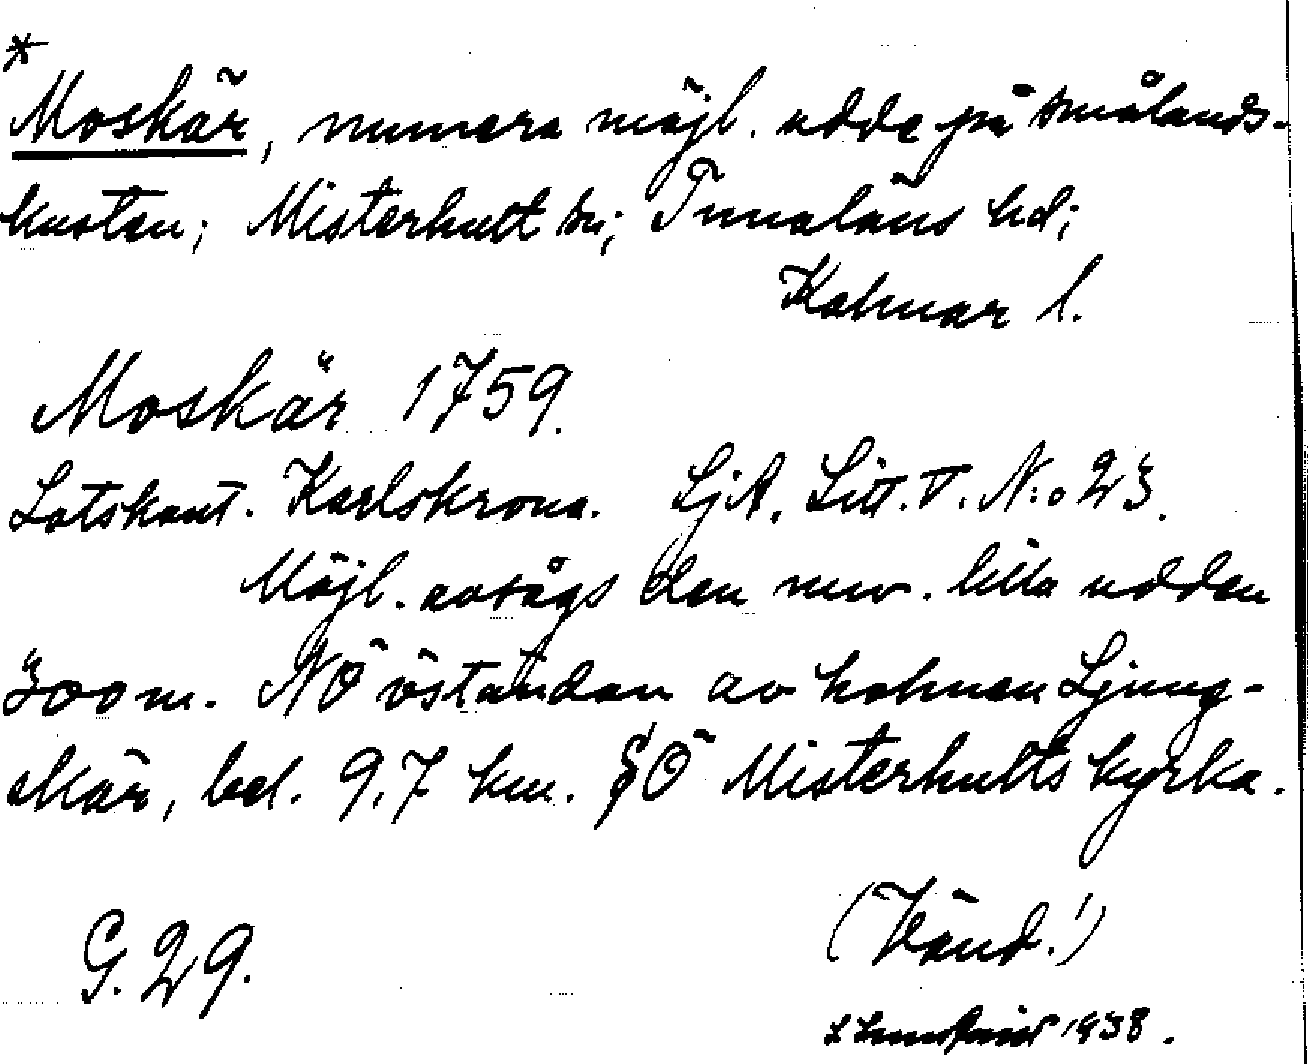 *
Moskär, numera möjl. udde på Smålands-
kusten; Misterhult sn; Tunaläns hd;
Kalmar l.
Moskär 1759.
Lotskont. Karlskrona. SjA. Litt. T. N:o 23.
Möjl. avsågs den nuv. lilla udden
300 m. NÖ östandan av holmen Ljung-
skär, bel. 9,7 km. SÖ Misterhults kyrka.
(Vänd!)
G. 29.
1938.